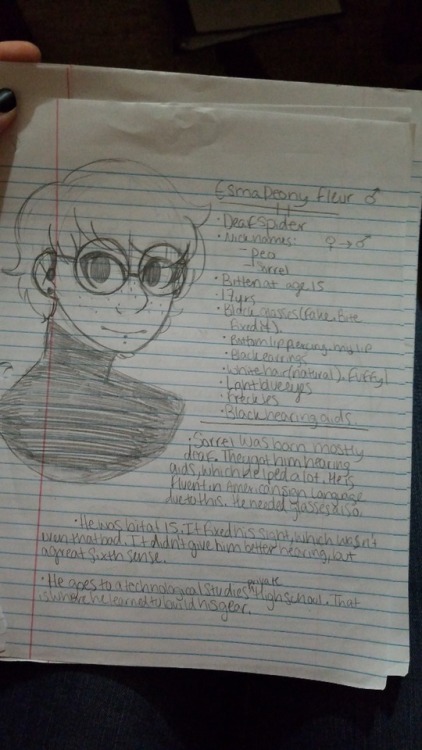 Esma Peony Fleur ♂
• Deaf Spider
• Nicknames: ♀→♂
- pea
- Sorrel
• Bitten at age 15
17yrs
• Black glasses (fake, bite
fixed it).
• Bottom lip piercing, my lip
• Black earrings
• White hair (natural), fuffy!
• Light blue eyes
• Freckles
• Black hearing aids.
• Sorrel was born mostly
deaf. They got him hearing
aids, which helped a lot. He is
fluent in American sign language
due to this. He needed glasses also.
• He was bit at 15. It fixed his sight, which wasn't
even that bad. It didn't give him better hearing, but
a great sixth sense.
• He goes to a technological studies private High school. That
is where he learned to build his gear.